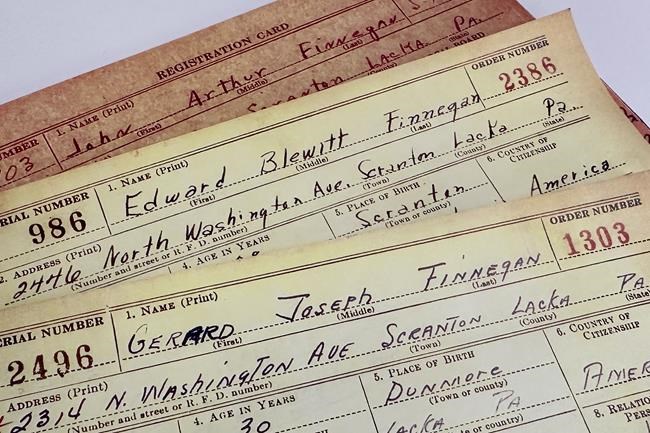 REGISTRATION CARD
NUMBER
1. NAME (Print)
John Arthur Finnegan
(First) (Middle) (Last)
Scranton Lacka Pa
(County) (State)
ORDER NUMBER
2386
SERIAL NUMBER
986
1. NAME (Print)
Edward Blewitt Finnegan
(First) (Middle) (Last)
2. ADDRESS (Print)
2446 North Washington Ave. Scranton Lacka Pa.
(Number and street or R. F. D. number) (Town) (County) (State)
4. AGE IN YEARS
5. PLACE OF BIRTH
Scranton
(Town or county)
6. COUNTRY OF CITIZENSHIP
America
ORDER NUMBER
1303
SERIAL NUMBER
2496
1. NAME (Print)
GERARD Joseph FINNEGAN
(First) (Middle) (Last)
ADDRESS (Print)
2314 N. WASHINGTON AVE SCRANTON LACKA PA
(Number and street or R. F. D. number) (Town) (County) (State)
4. AGE IN YEARS
30
5. PLACE OF BIRTH
DUNMORE
(Town or county)
LACKA PA
or country)
6. COUNTRY OF CITIZENSHIP
AMER
8. RELATION
PERS